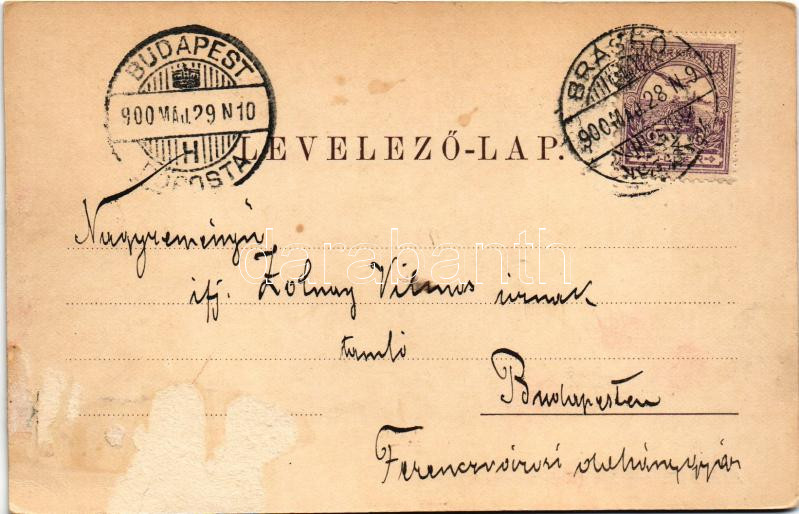 BUDAPEST
900 MÁJ. 29 N 10
H
FŐPOSTA
BRASSÓ
900 MÁJ. 28 N 9
LEVELEZŐ-LAP.
Nagyreményű
ifj. Zolnay Vilmos úrnak
tanuló
Budapesten
Ferenczvárosi dohánygyár
darabanth